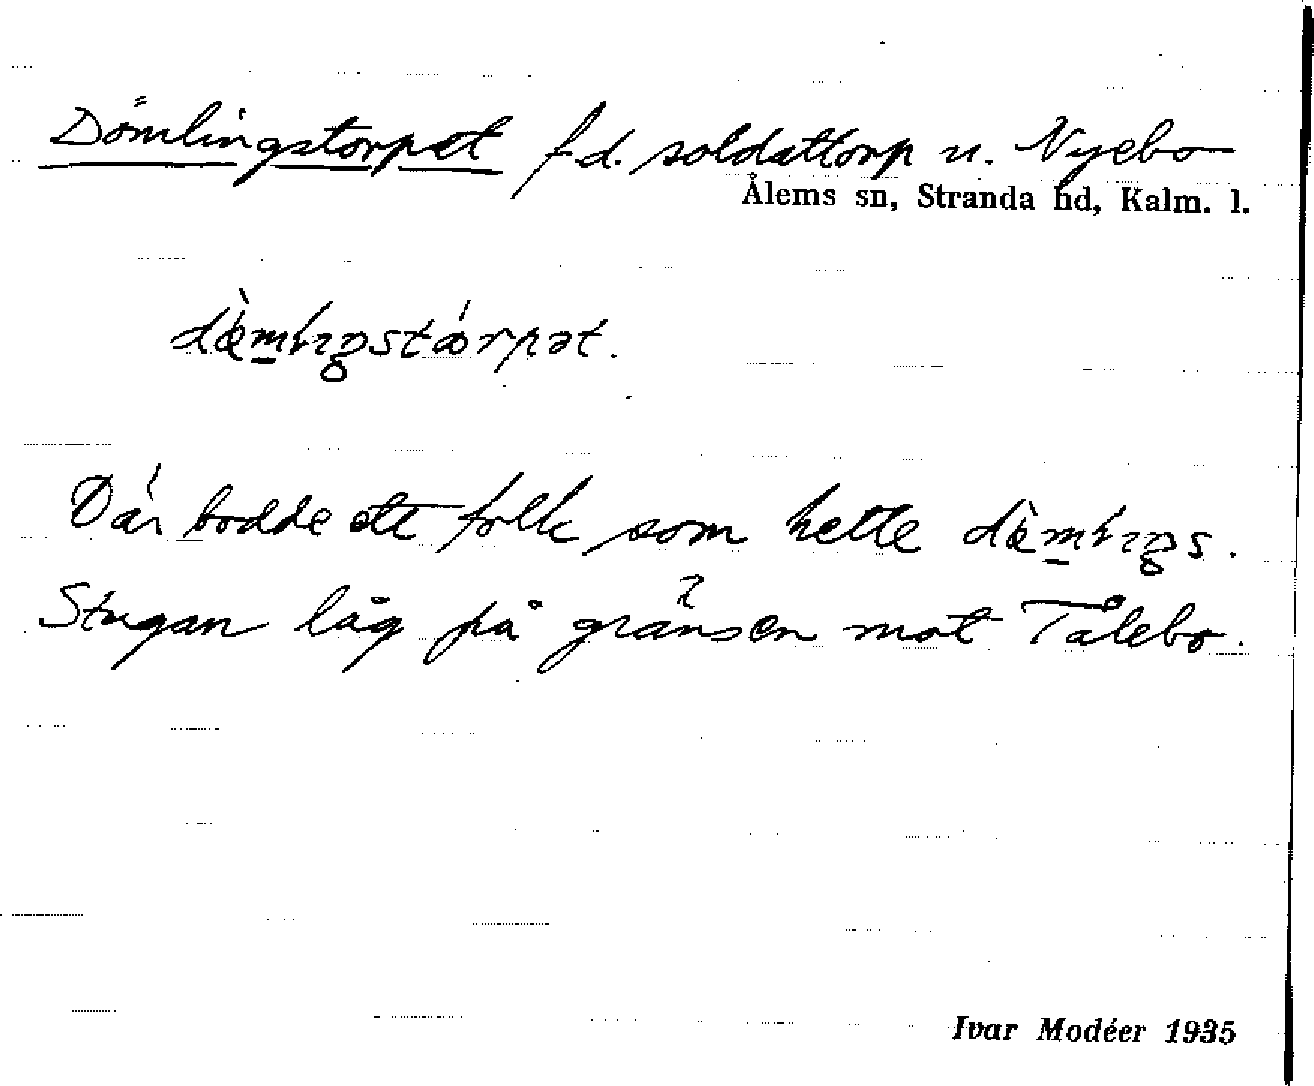 Dömlingstorpet f.d. soldattorp u. Nyebo
Ålems sn, Stranda hd, Kalm. l.
Där bodde ett folk som hette
Stugan låg på gränsen mot Tålebo.
Ivar Modéer 1935